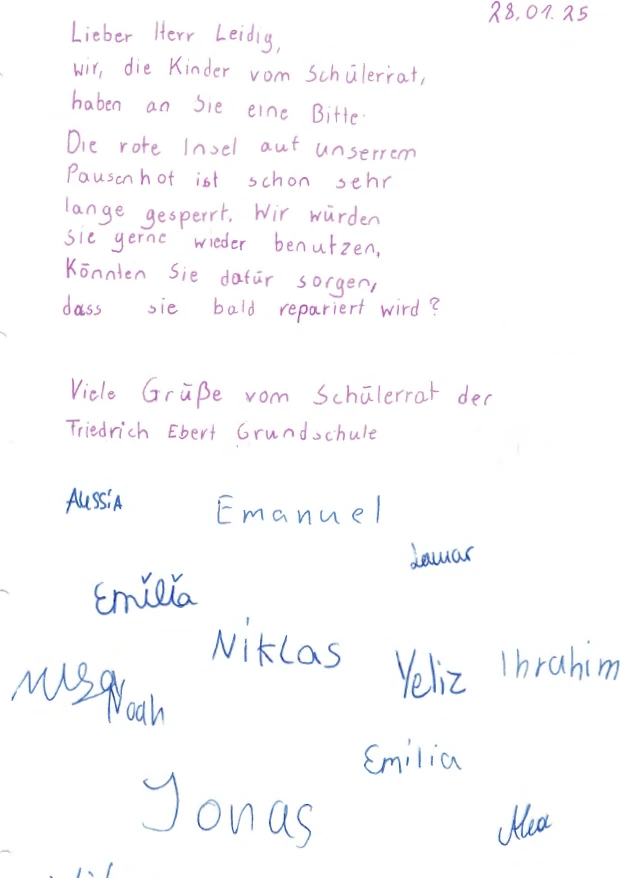 28.01.25
Lieber Herr Leidig,
wir, die Kinder vom Schülerrat,
haben an Sie eine Bitte.
Die rote Insel auf unserrem
Pausenhof ist schon sehr
lange gesperrt. Wir würden
sie gerne wieder benutzen,
Könnten Sie dafür sorgen,
dass sie bald repariert wird?
Viele Grüße vom Schülerrat der
Friedrich Ebert Grundschule
Alessia
Emanuel
Lamar
Emilia
Niklas
Yeliz
Ibrahim
Noah
Emilia
Jonas
Alea